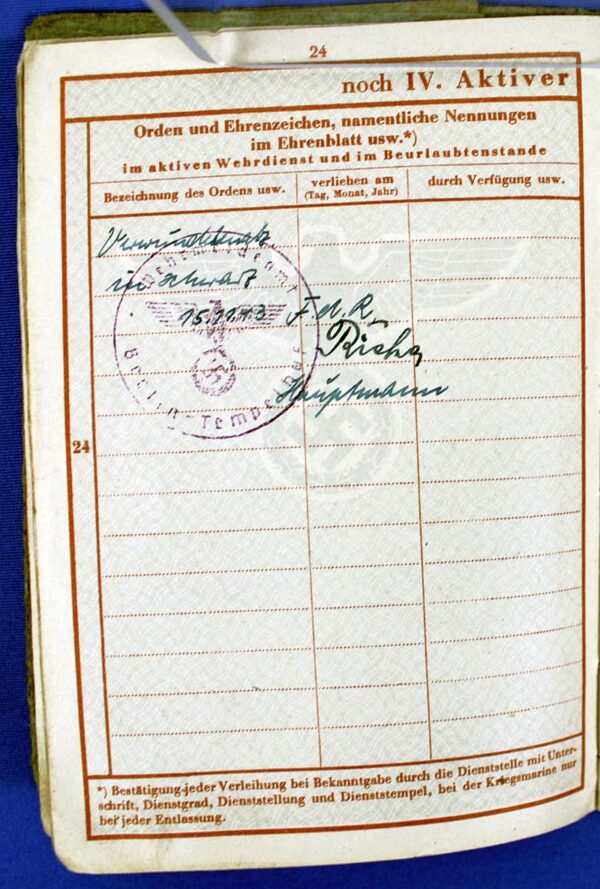 24
noch IV. Aktiver
Orden und Ehrenzeichen, namentliche Nennungen
im Ehrenblatt usw.*)
im aktiven Wehrdienst und im Beurlaubtenstande
Bezeichnung des Ordens usw.
verliehen am
(Tag, Monat, Jahr)
durch Verfügung usw.
in schwarz
15.11.43 F. d. R.
Hauptmann
Wehrmeldeamt
Berlin-Tempelhof
24
*) Bestätigung jeder Verleihung bei Bekanntgabe durch die Dienststelle mit Unter-
schrift, Dienstgrad, Dienststellung und Dienststempel, bei der Kriegsmarine nur
bei jeder Entlassung.